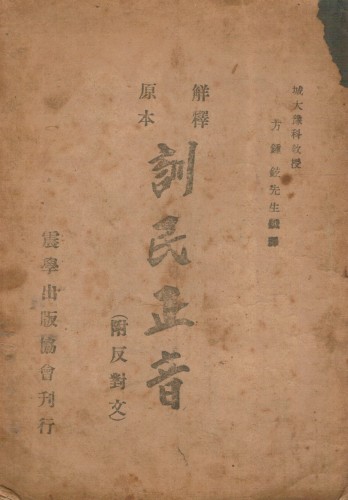 城大豫科敎授
方鍾鉉先生
解釋
原本
訓民正音
(附反對文)
震學出版協會刊行